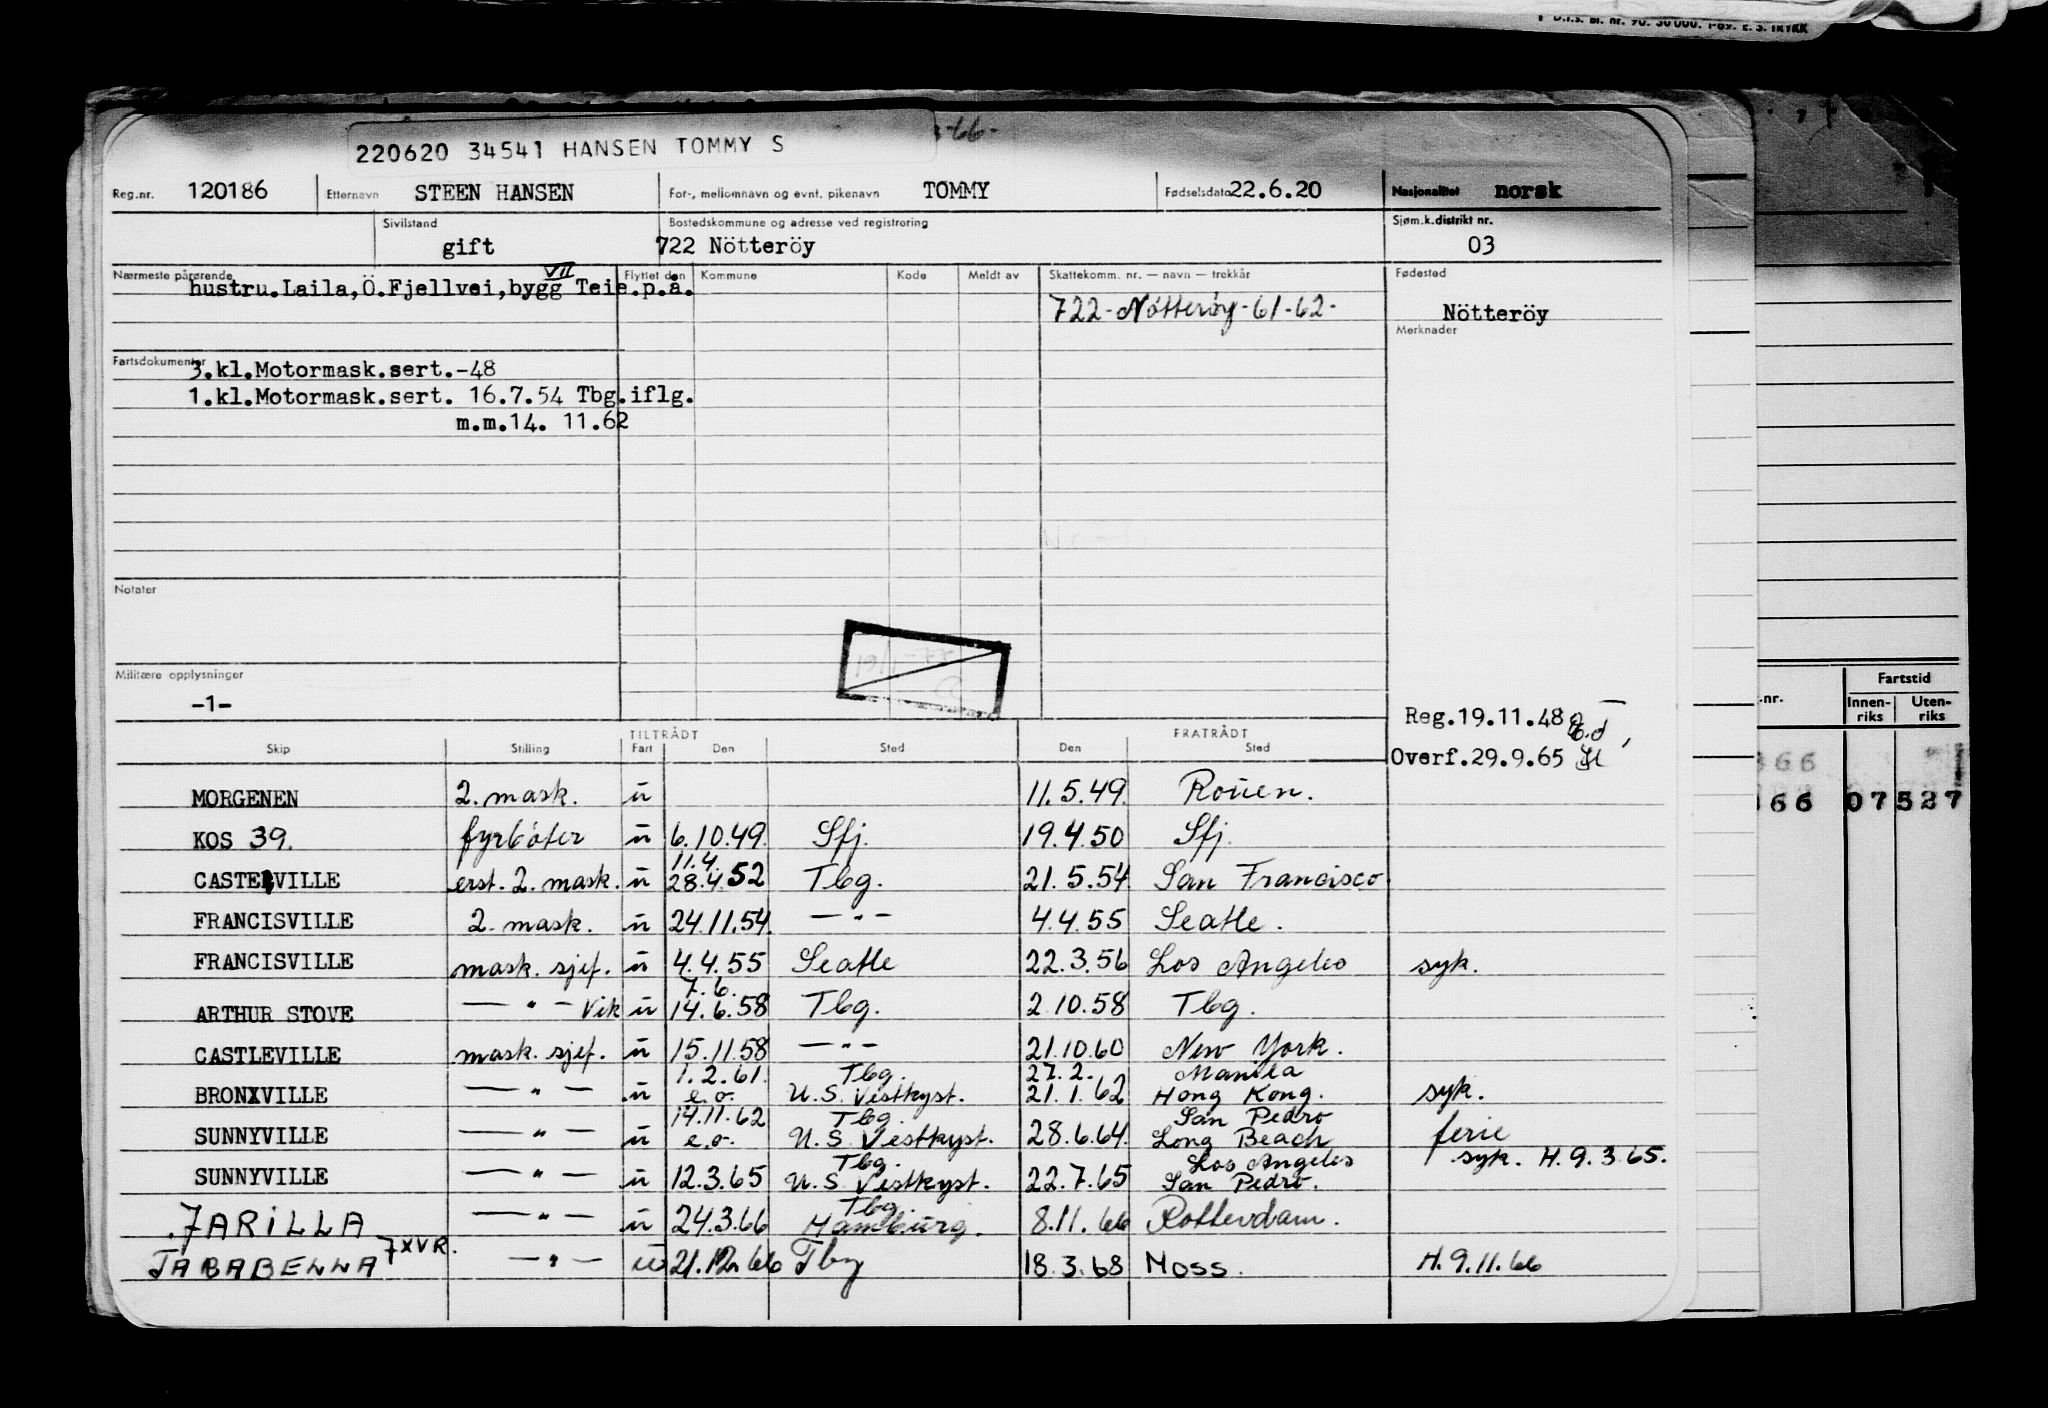 D.I.s. bl. nr. 90. 50 000. 1-69. E. S. TRYKK
-66-
220620 34541 HANSEN TOMMY S
Reg.nr. 120186 Etternavn STEEN HANSEN For-, mellomnavn og evnt. pikenavn TOMMY Fødselsdato 22.6.20 Nasjonalitet norsk
Sivilstand gift Bostedskommune og adresse ved registrering 722 Nötteröy Sjøm.k.distrikt nr. 03
Nærmeste pårørende Flyttet den Kommune Kode Meldt av Skattekomm. nr. — navn — trekkår Fødested
VII
hustru.Laila,Ö.Fjellvei,bygg Teie.p.å.
722-Nötteröy-61-62- Nötteröy
Merknader
Fartsdokumenter
3.kl.Motormask.sert.-48
1.kl.Motormask.sert. 16.7.54 Tbg.iflg.
m.m.14. 11.62
Notater
Militære opplysninger
-1-
Reg.19.11.48
Overf.29.9.65
Fartstid
.nr. Innen-riks Uten-riks
366
366 07527
TILTRÅDT FRATRÅDT
Skip Stilling Fart Den Sted Den Sted
MORGENEN 2. mask. u 11.5.49. Rouen.
KOS 39. fyrbøter u 6.10.49. Sfj. 19.4.50 Sfj.
11.4.
CASTELVILLE erst. 2. mask. u 28.4.52 Tbg. 21.5.54 San Francisco.
FRANCISVILLE 2. mask. u 24.11.54. —"— 4.4.55 Seatle.
FRANCISVILLE mask. sjef. u 4.4.55 Seatle 22.3.56 Los Angeles syk.
7.6.
ARTHUR STOVE —"— Vik u 14.6.58 Tbg. 2.10.58 Tbg.
CASTLEVILLE mask. sjef. u 15.11.58 —"— 21.10.60 New York.
1.2.61. Tbg. 27.2. Manila
BRONXVILLE —"— u e.o. U.S. Vestkyst. 21.1.62 Hong Kong. syk.
14.11.62 Tbg. San Pedro
SUNNYVILLE —"— u e.o. U.S. Vestkyst. 28.6.64. Long Beach ferie
Tbg. Los Angeles syk. H.9.3.65.
SUNNYVILLE —"— u 12.3.65 U.S. Vestkyst. 22.7.65 San Pedro.
Tbg.
JARILLA —"— u 24.3.66 Hamburg. 8.11.66 Rotterdam.
7XVR.
JABABELLA —"— u 21.12.66 Tbg 18.3.68 Moss. H.9.11.66